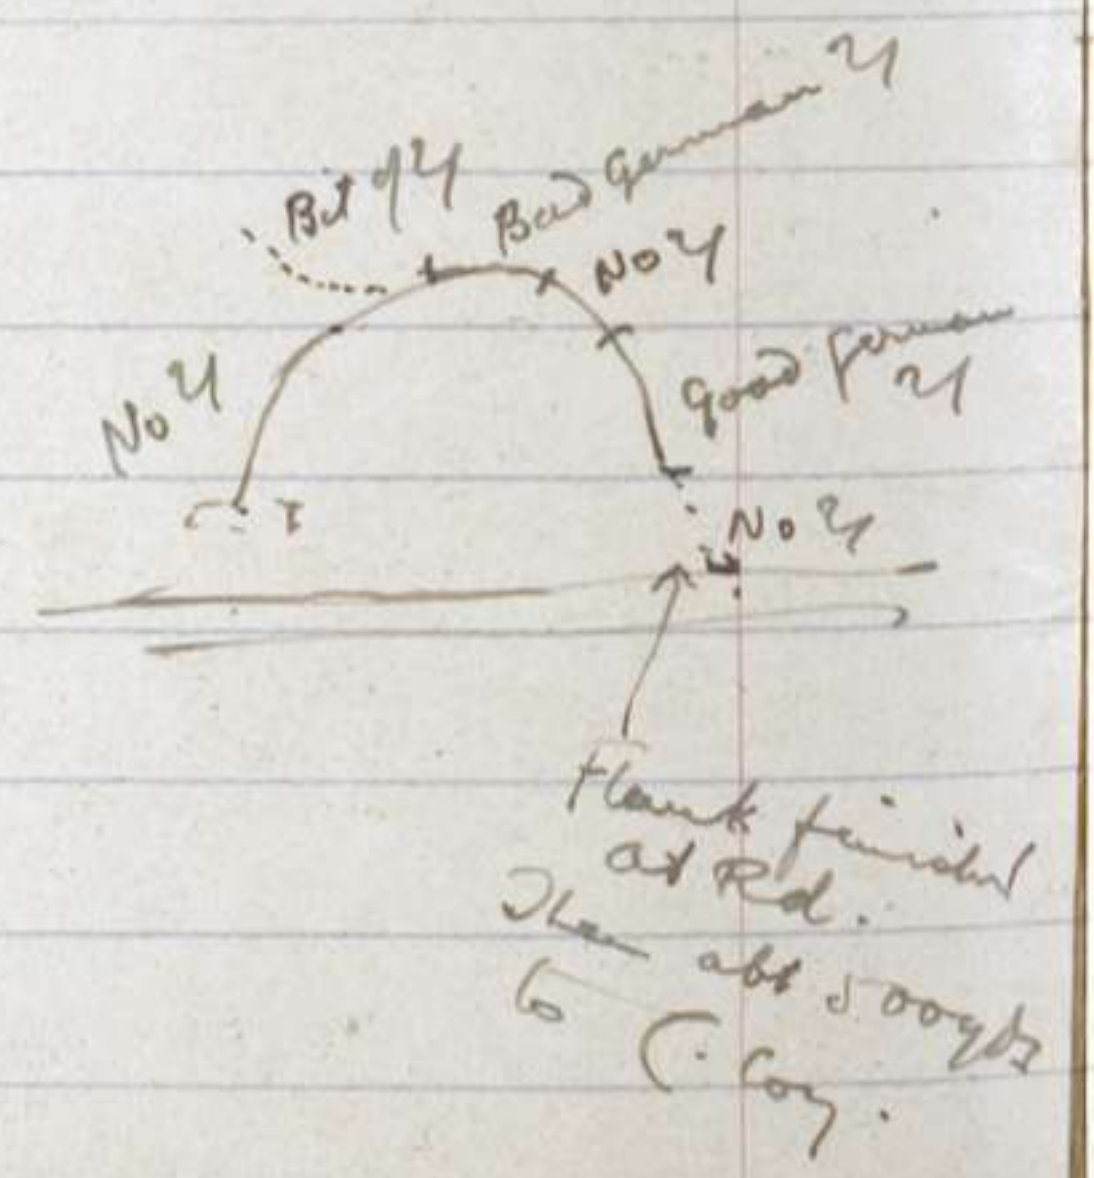 Bad German
Bit of
No
No
Good German
No
Flank finished
at Rd.
Then abt 500 yds
to
C. Coy.